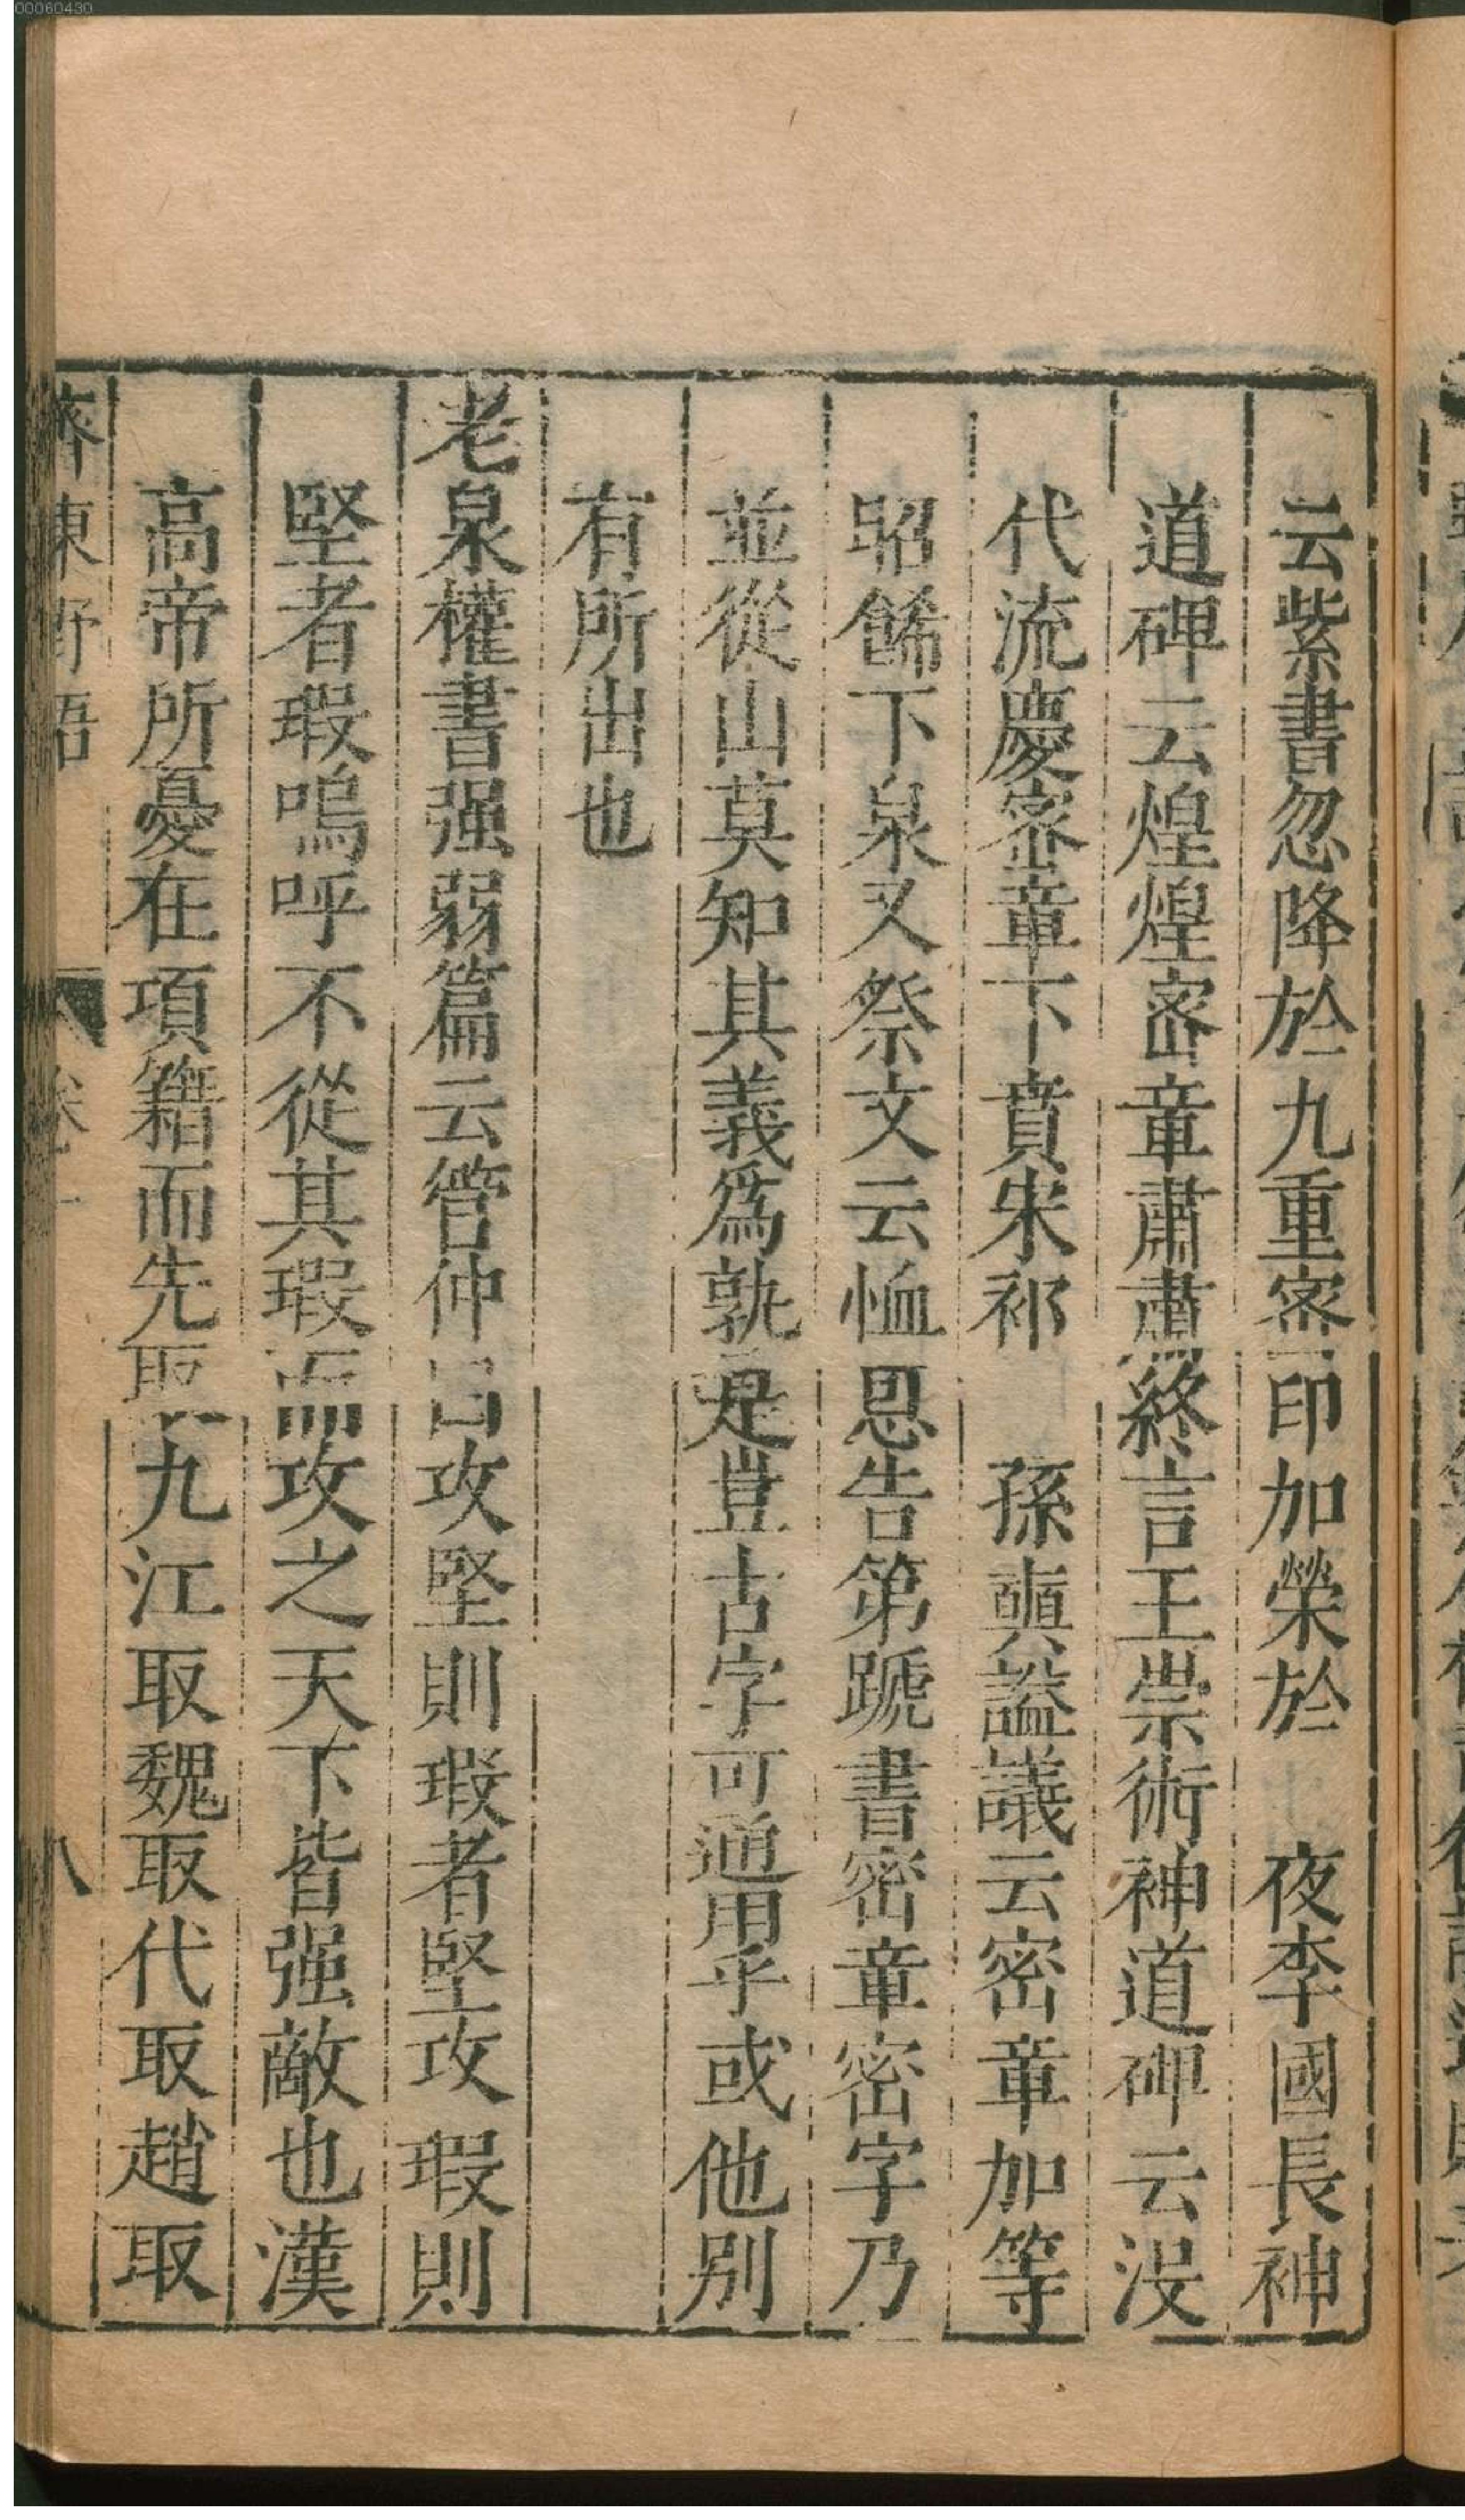 云紫書忽降於九重宻印加榮於 夜李國長神
道碑云煌煌宻章肅肅終言王崇術神道碑云沒
代流慶宻章下賁宋祁 孫奭謚議云密章加等
昭餙下泉又祭文云恤恩告第蹏書密章密字乃
並從山莫知其義爲孰是豈古字可通用乎或他别
有所出也
老泉權書强弱篇云管仲曰攻堅則瑕者堅攻瑕則
堅者瑕嗚呼不從其瑕而攻之天下皆强敵也漢
高帝所憂在項籍而先取九江取魏取代取趙取
齊東野語 卷十 八
00060430